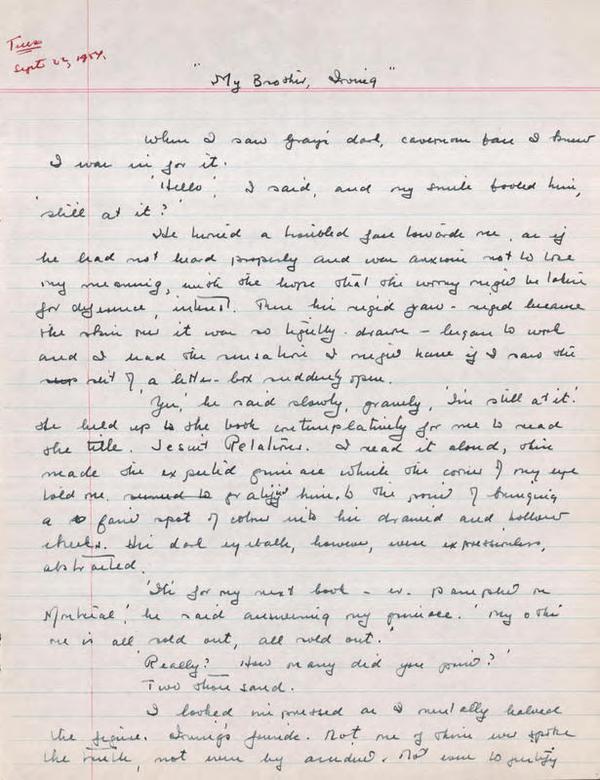 Tues
Sept 22, 1954.
"My Brother, Irving"
When I saw Gray's dark, cavernous face I knew
I was in for it.
'Hello', I said, and my smile fooled him,
'still at it?'
He turned a troubled face towards me, as if
he had not heard properly and was anxious not to lose
my meaning, with the hope that the worry might be taken
for deference, interest. Then his rigid jaw - rigid because
the skin over it was so tightly drawn - began to work
and I had the sensation I might have if I saw the
slit of a letter-box suddenly open.
'Yes,' he said slowly, gravely, 'I'm still at it.'
He held up to the book contemplatively for me to read
the title. Jesuit Relations. I read it aloud, then
made the expected grimace which the corner of my eye
told me seemed to gratify him, to the point of bringing
a faint spot of colour into his drained and hollow
cheeks. His dark eyeballs, however, were expressionless,
abstracted.
'It's for my next book - er. pamphlet on
Montreal,' he said answering my grimace. 'My other
one is all sold out, all sold out.'
'Really? How many did you print?'
Two thousand.
I looked impressed as I mentally halved
the figure. Irving's friends. Not one of them ever spoke
the truth, not even by accident. Not even to justify